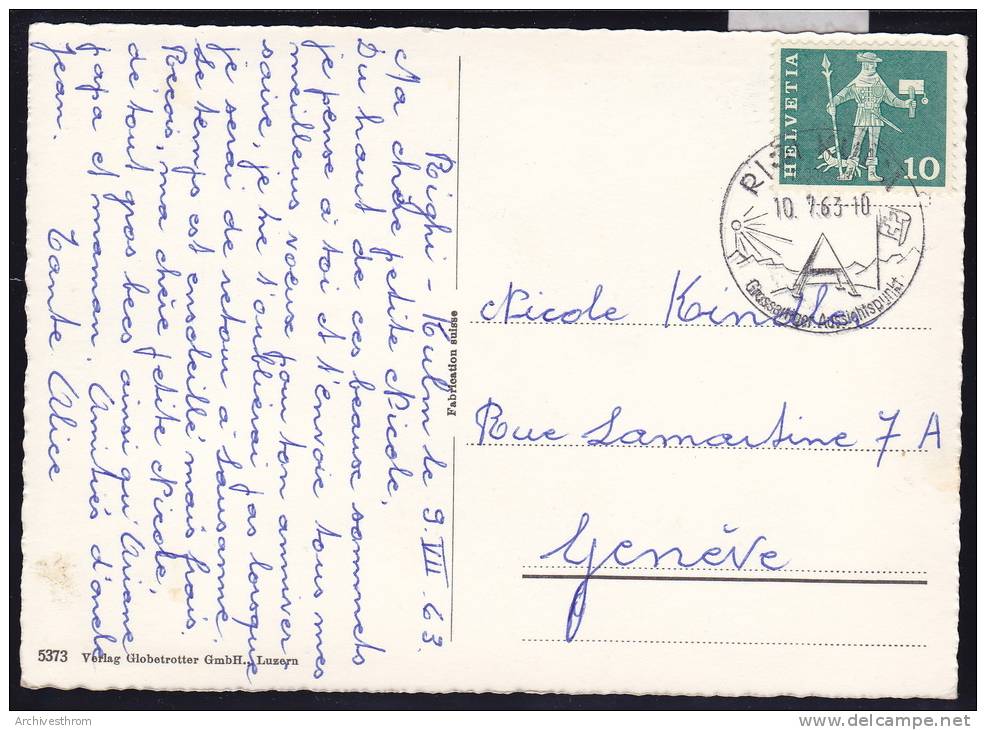 Righi - Kulm le 9. VII. 63.
Ma chère petite Nicole,
Du haut de ces beaux sommets
je pense à toi et t'envoie tous mes
meilleurs voeux pour ton anniver-
saire, je ne t'oublierai pas lorsque
je serai de retour à Lausanne.
Le temps est ensoleillé mais frais.
Reçois, ma chère petite Nicole,
de tout gros becs ainsi qu'Ariane
papa et maman. Amitiés d'oncle
Jean. Tante Alice
5373 Verlag Globetrotter GmbH., Luzern
Fabrication suisse
HELVETIA
10
10. 7.63-10
Grossartiger Aussichtspunkt
Nicole Kindler
Rue Lamartine 7 A
Genève
Archivesthrom
delcampe.net